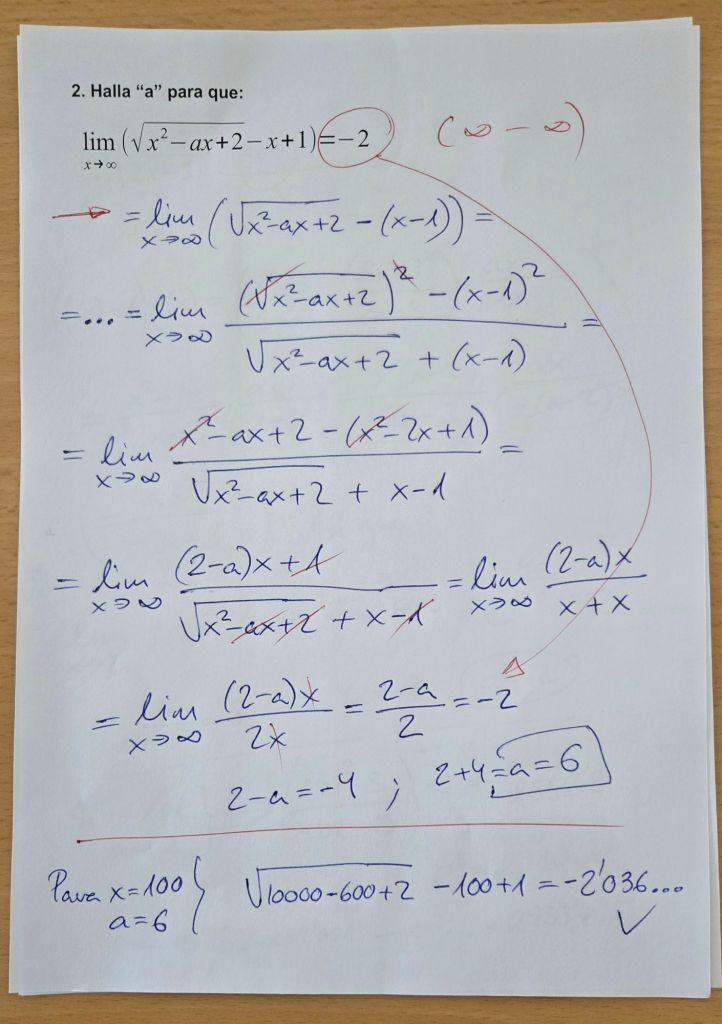 2. Halla “a” para que:
lim x→∞ (√(x²−ax+2)−x+1)=−2 (∞ − ∞)
→ = lim x→∞ (√(x²-ax+2) - (x-1)) =
= ... = lim x→∞ ((√(x²-ax+2))² - (x-1)²) / (√(x²-ax+2) + (x-1)) =
= lim x→∞ (x²-ax+2 - (x²-2x+1)) / (√(x²-ax+2) + x-1) =
= lim x→∞ ((2-a)x+1) / (√(x²-ax+2) + x-1) = lim x→∞ (2-a)x / (x+x)
= lim x→∞ (2-a)x / 2x = (2-a)/2 = -2
2-a=-4 ; 2+4=a=6
Para x=100
a=6 } √(10000-600+2) -100+1 = -2'036...
✓